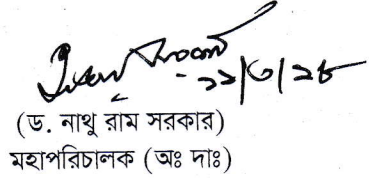 ২২/৩/১৮
(ড. নাথু রাম সরকার)
মহাপরিচালক (অঃ দাঃ)